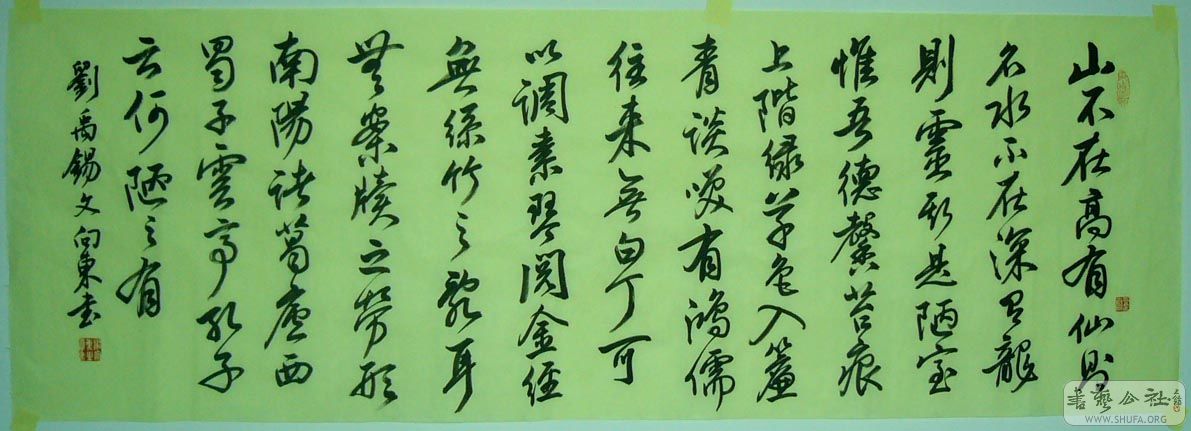 山不在高有仙則
名水不在深有龍
則靈斯是陋室
惟吾德馨苔痕
上階绿草色入簾
青談笑有鴻儒
往来無白丁可
以調素琴閱金經
無絲竹之亂耳
無案牘之勞形
南陽諸葛廬西
蜀子雲亭孔子
云何陋之有
劉禹錫文向東書
書藝公社
WWW.SHUFA.ORG